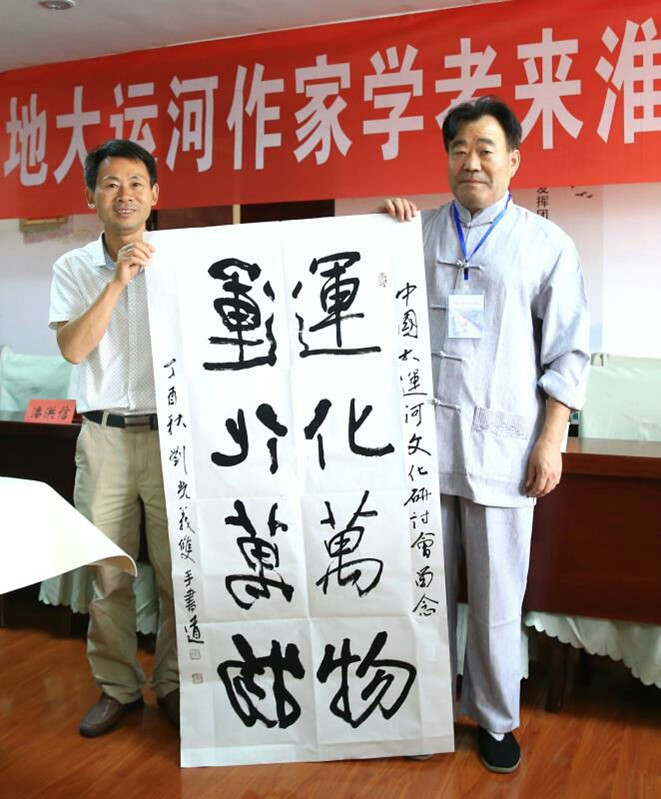 地大运河作家学者来淮
发挥团
潘洪信
中國大運河文化研討會留念
運化萬物
運化萬物
丁酉秋劉 義雙手書道